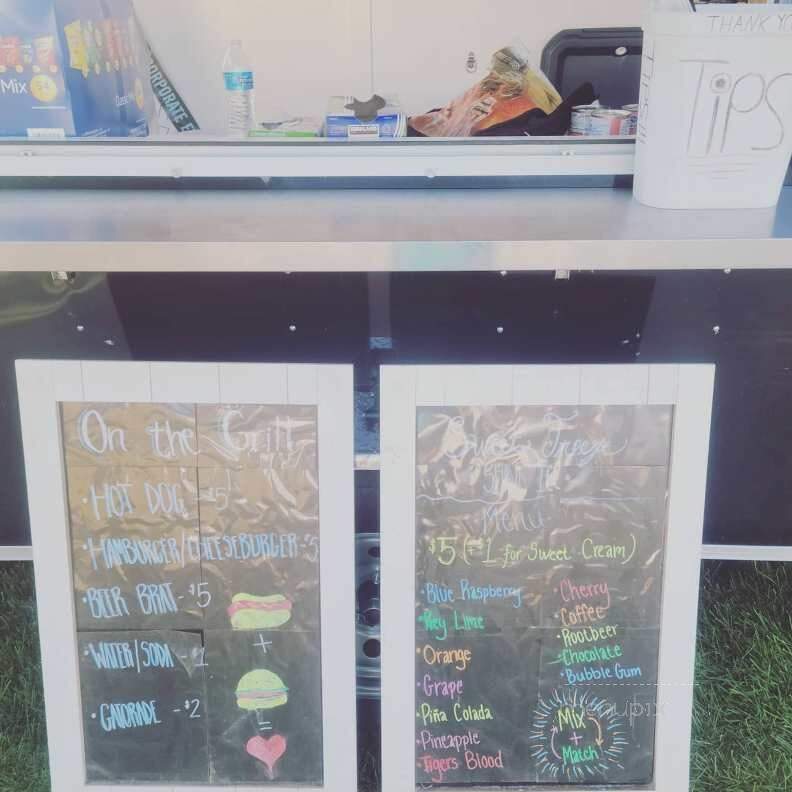 Mix
CORPORATE E
THANK YO
TiPS
On the Grill
• HOT DOG - $5
• HAMBURGER/CHEESEBURGER - $5
• BEER BRAT - $5
• WATER/SODA - $1
• GATORADE - $2
+
=
Sweet Freeze
Menu
$5 (+$1 for Sweet Cream)
• Blue Raspberry
• Key Lime
• Orange
• Grape
• Piña Colada
• Pineapple
• Tigers Blood
• Cherry
• Coffee
• Rootbeer
• Chocolate
• Bubble Gum
Mix
+
Match